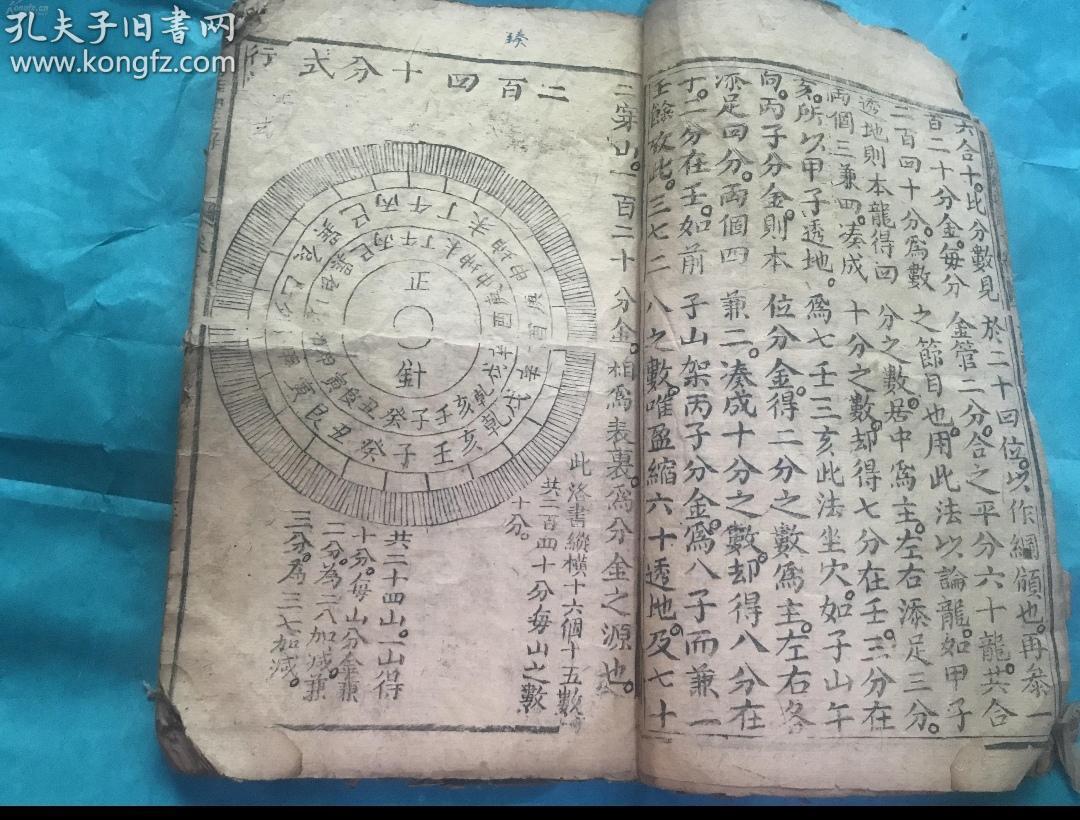 孔夫子旧书网
www.kongfz.com
六合十。此分數見於二十四位。以作綱領也。再叅一
百二十分金。每分金管二分。合之平分六十龍。共合
二百四十分。爲數之節目也。用此法以論龍。如甲子
透地則本龍得四分之數。居中爲主。左右添足三分。
兩個三兼四。凑成十分之數。却得七分在壬。三分在
亥。所以甲子透地。爲七壬三亥此法坐穴。如子山午
向。丙子分金。則本位分金。得二分之數爲主。左右各
添足四分。兩個四兼二。凑成十分之數。却得八分在
子。二分在壬。如前子山架丙子分金。爲八子而兼一
壬餘放此。三七二八之數。唯盈縮六十透地。及七十
二穿山。一百二十分金。相爲表裏。爲分金之源也。
二百四十分式
正
針
壬子癸丑艮寅
巳丙午丁未坤申庚酉辛戌乾亥
此洛書縱橫十六個十五數
共二百四十分每山之數
十分。
共二十四山。一山得
十分。每山分金兼
二分。為二八加減。兼
三分。為三七加減。